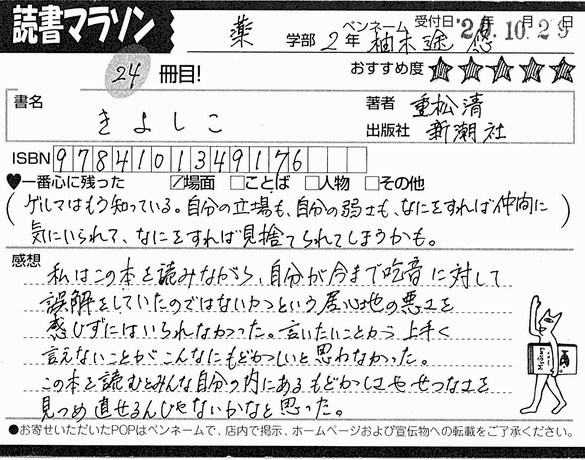 読書マラソン
薬 学部 2年 ペンネーム 柚木途 受付日 10.29
24 冊目! おすすめ度 ★★★★★
書名 きよしこ
著者 重松清
出版社 新潮社
ISBN 9784101349176
♥一番心に残った ☑場面 □ことば □人物 □その他
(ゲルマはもう知っている。自分の立場も、自分の弱さも、なにをすれば仲間に
気にいられて、なにをすれば見捨てられてしまうかも。)
感想
私はこの本を読みながら、自分が今まで吃音に対して
誤解をしていたのではないかという居心地の悪さを
感じずにはいられなかった。言いたいことがうま上手く
言えないことがこんなにもどかしいと思わなかった。
この本を読むとみんな自分の内にあるもどかしさやせつなさを
見つめ直せるんじゃないかなと思った。
●お寄せいただいたPOPはペンネームで、店内で掲示、ホームページおよび宣伝物への転載をご了承ください。